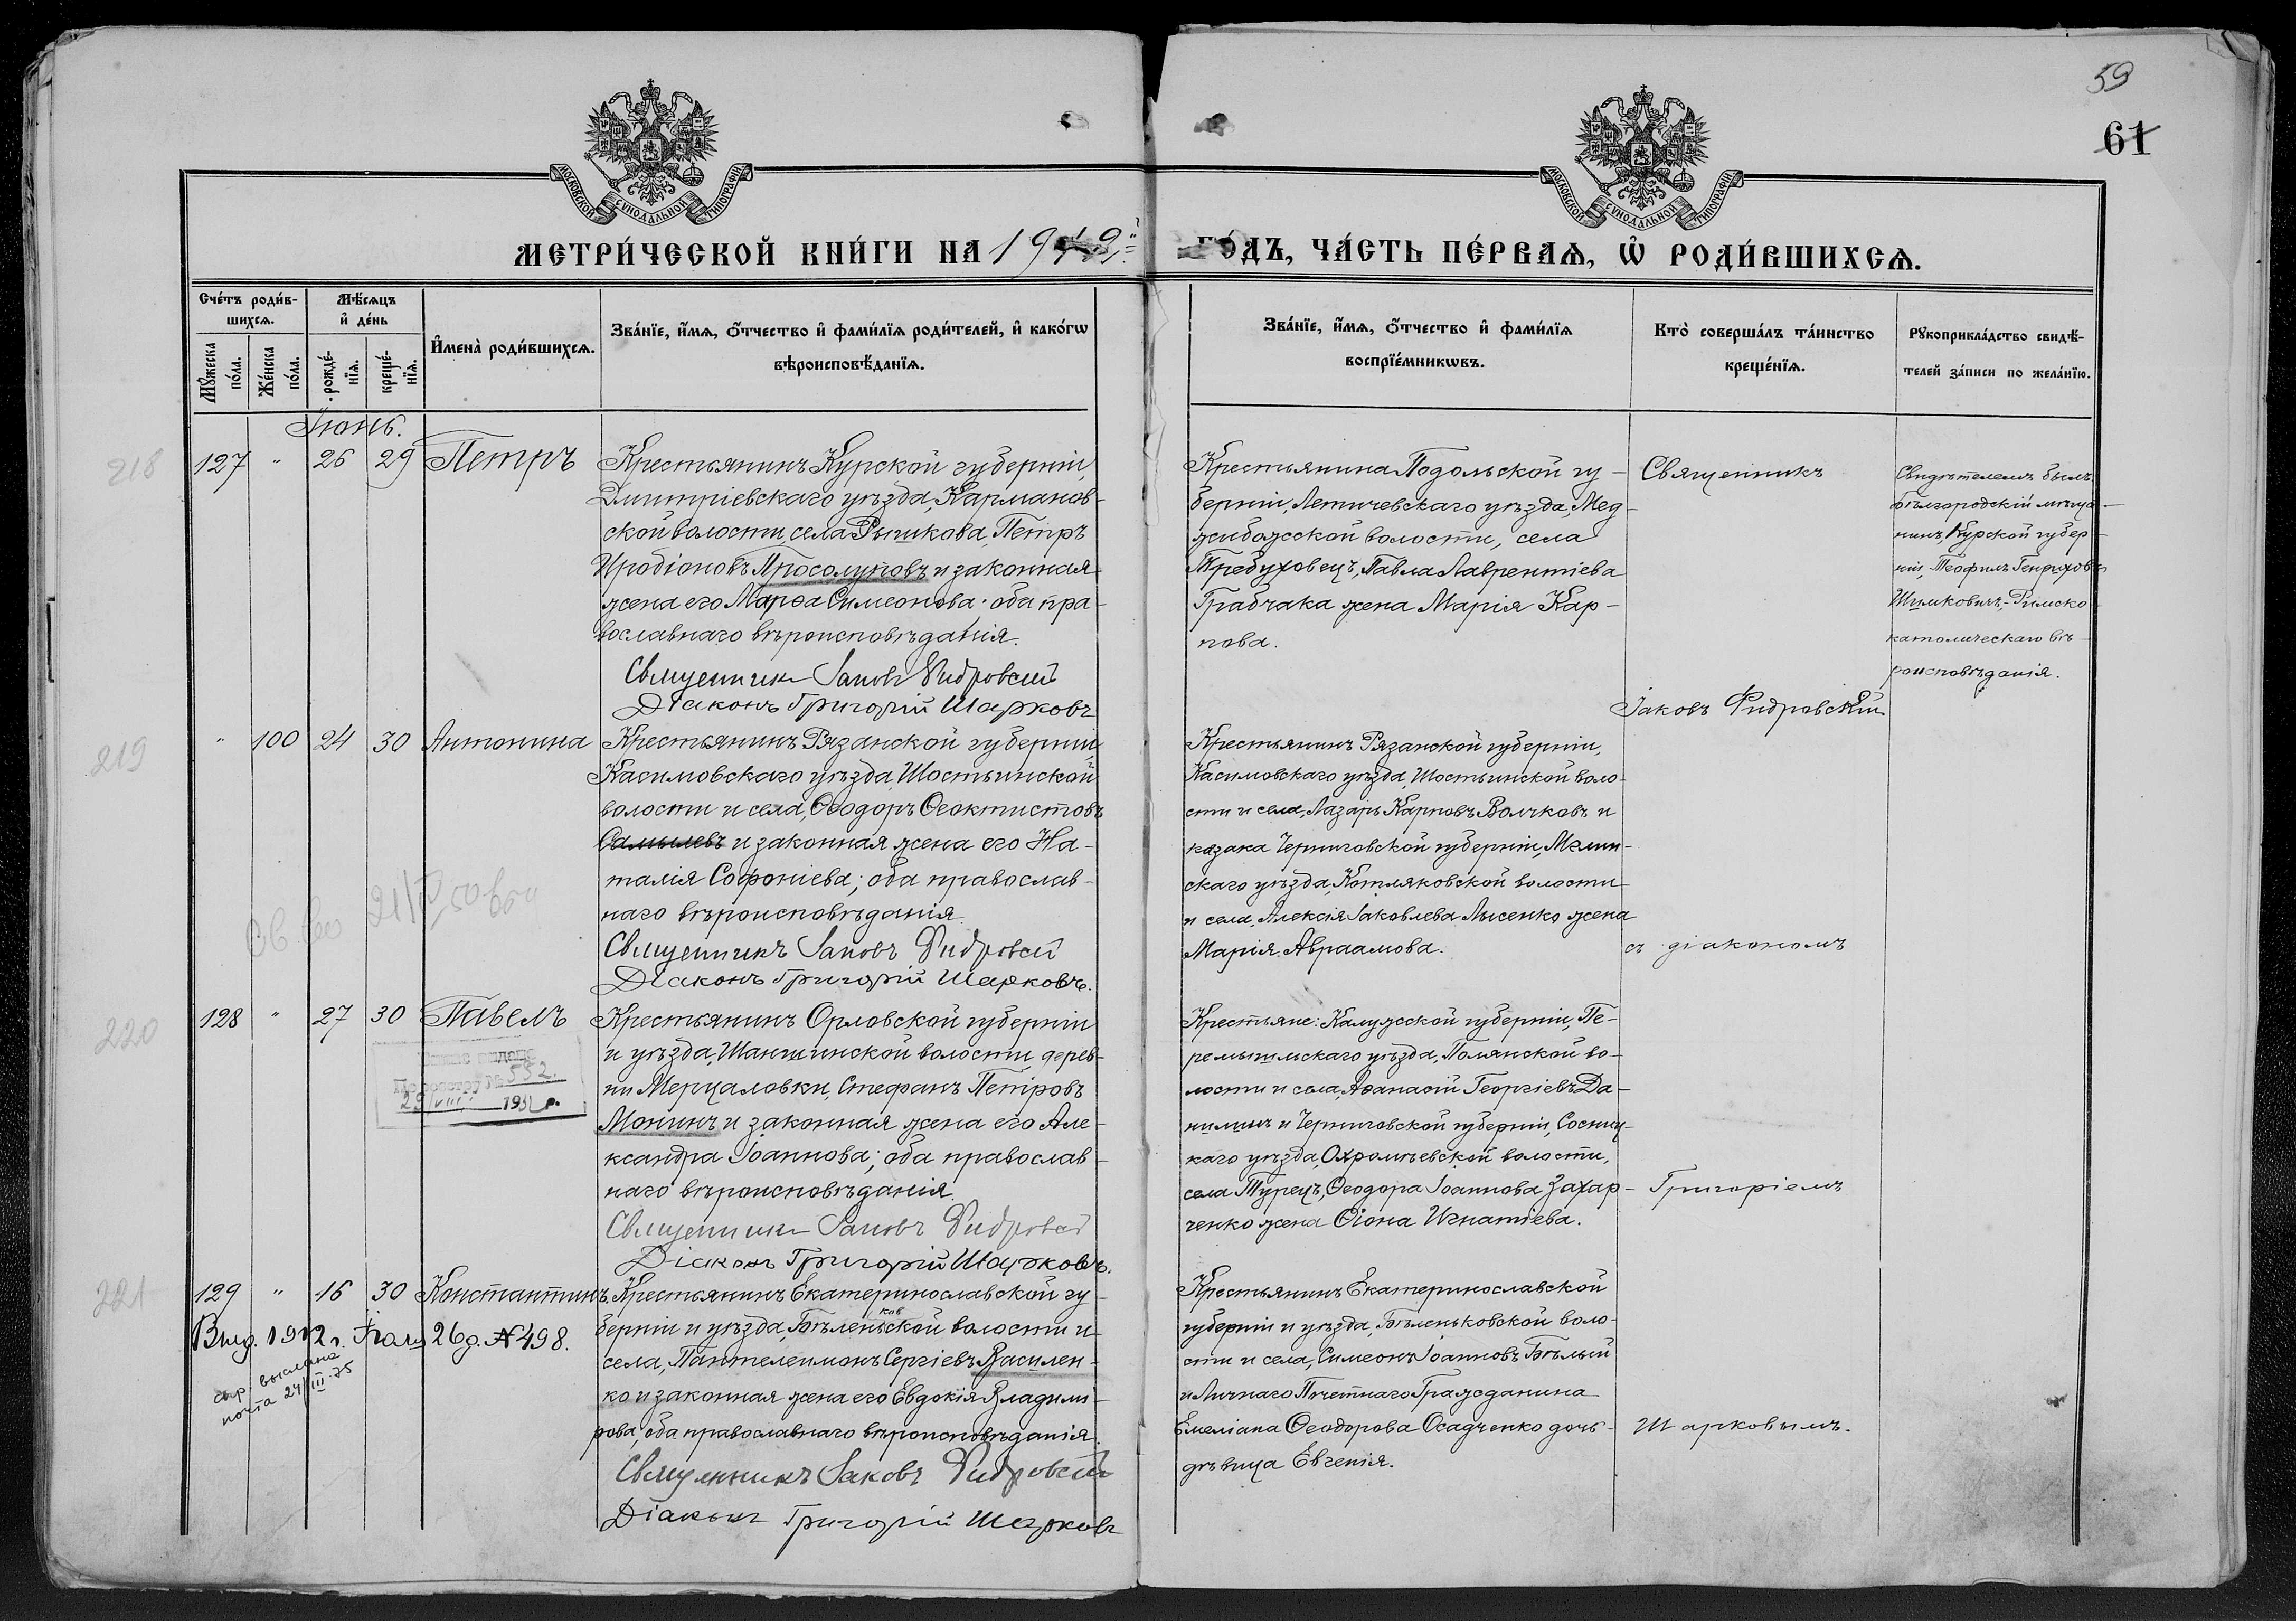 59
61
МОСКОВСКОЙ СѴНОДАЛЬНОЙ ТИПОГРАФІИ
МОСКОВСКОЙ СѴНОДАЛЬНОЙ ТИПОГРАФІИ
МЕТРИ́ЧЕСКОЙ КНИ́ГИ НА 19
ГО́ДЪ, ЧА́СТЬ ПЕ́РВАѦ, Ѡ҆ РОДИ́ВШИХСѦ.
Сче́тъ роди́в-
шихсѧ.
Мꙋ́жеска
по́ла.
Же́нска
по́ла.
Мѣ́сѧцъ
и҆ де́нь
рожде́-
нїѧ.
креще́-
нїѧ.
И҆мена̀ роди́вшихсѧ.
Зва́нїе, и҆́мѧ, ѻ҆́тчество и҆ фами́лїѧ роди́телей, и҆ како́гѡ
вѣроисповѣ́данїѧ.
Зва́нїе, и҆́мѧ, ѻ҆́тчество и҆ фами́лїѧ
воспрїе́мникѡвъ.
Кто̀ соверша́лъ та́инство
креще́нїѧ.
Рꙋкоприкла́дство свидѣ́-
телей за́писи по жела́нїю.
Іюнь.
218
127 " 26 29 Петръ
Крестьянинъ Курской губерніи,
Дмитріевскаго уѣзда, Карманов-
ской волости, села Рышкова, Петръ
Иродіоновъ Просолуповъ и законная
жена его Марѳа Симеонова; оба пра-
вославнаго вѣроисповѣданія.
Священникъ Іаковъ Фидровскій
Діаконъ Григорій Шарковъ
Крестьянина Подольской гу-
берніи, Летичевскаго уѣзда, Мед-
жибожской волости, села
Требуховецъ, Павла Лаврентіева
Грабчака жена Марія Кар-
пова.
Священникъ
Іаковъ Фидровскій
Свидѣтелемъ былъ
Бѣлгородскій мѣща-
нинъ, Курской губер-
ніи, Теофилъ Генриховъ
Шимковичъ, Римско
католическаго вѣ-
роисповѣданія.
219
" 100 24 30 Антонина
Крестьянинъ Рязанской губерніи,
Касимовскаго уѣзда, Шостьинской
волости и села, Ѳеодоръ Ѳеоктистовъ
Самылевъ и законная жена его На-
талія Софоніева; оба православ-
наго вѣроисповѣданія.
Священникъ Іаковъ Фидровскій
Діаконъ Григорій Шарковъ.
Крестьянинъ Рязанской губерніи,
Касимовскаго уѣзда, Шостьинской воло-
сти и села, Лазарь Карповъ Волчковъ и
казака Черниговской губерніи, Мглин-
скаго уѣзда, Котляковской волости
и села, Алексія Іаковлева Лысенко жена
Марія Авраамова.
съ діакономъ
220
128 " 27 30 Павелъ
№ 552.
29 VIII 1931 р.
Крестьянинъ Орловской губерніи
и уѣзда, Шаншинской волости, дерев-
ни Мерцаловки, Стефанъ Петровъ
Монинъ и законная жена его Але-
ксандра Іоаннова; оба православ-
наго вѣроисповѣданія.
Священникъ Іаковъ Фидровскій
Діаконъ Григорій Шарковъ.
Крестьяне: Калужской губерніи, Пе-
ремышльскаго уѣзда, Полянской во-
лости и села, Аѳанасій Георгіевъ Да-
нилинъ и Черниговской губерніи, Сосниц-
каго уѣзда, Охромѣевской волости,
села Турецъ, Ѳеодора Іоаннова Захар-
ченко жена Ѳіона Игнатіева.
Григоріемъ
221
129 " 16 30 Константинъ
Выд. 1912 г. Іюля 26 д. № 498.
выслана
почта 24/III-35
Крестьянинъ Екатеринославской гу-
берніи и уѣзда, Бѣленьковской волости и
села, Пантелеимонъ Сергіевъ Василен-
ко и законная жена его Евдокія Владимі-
рова, оба православнаго вѣроисповѣданія.
Священникъ Іаковъ Фидровскій
Діаконъ Григорій Шарковъ
Крестьянинъ Екатеринославской
губерніи и уѣзда, Бѣленьковской воло-
сти и села, Симеонъ Іоанновъ Бѣлый
и Личнаго Почетнаго Гражданина
Емеліана Ѳеодорова Осадченко дочь
дѣвица Евгенія.
Шарковымъ.